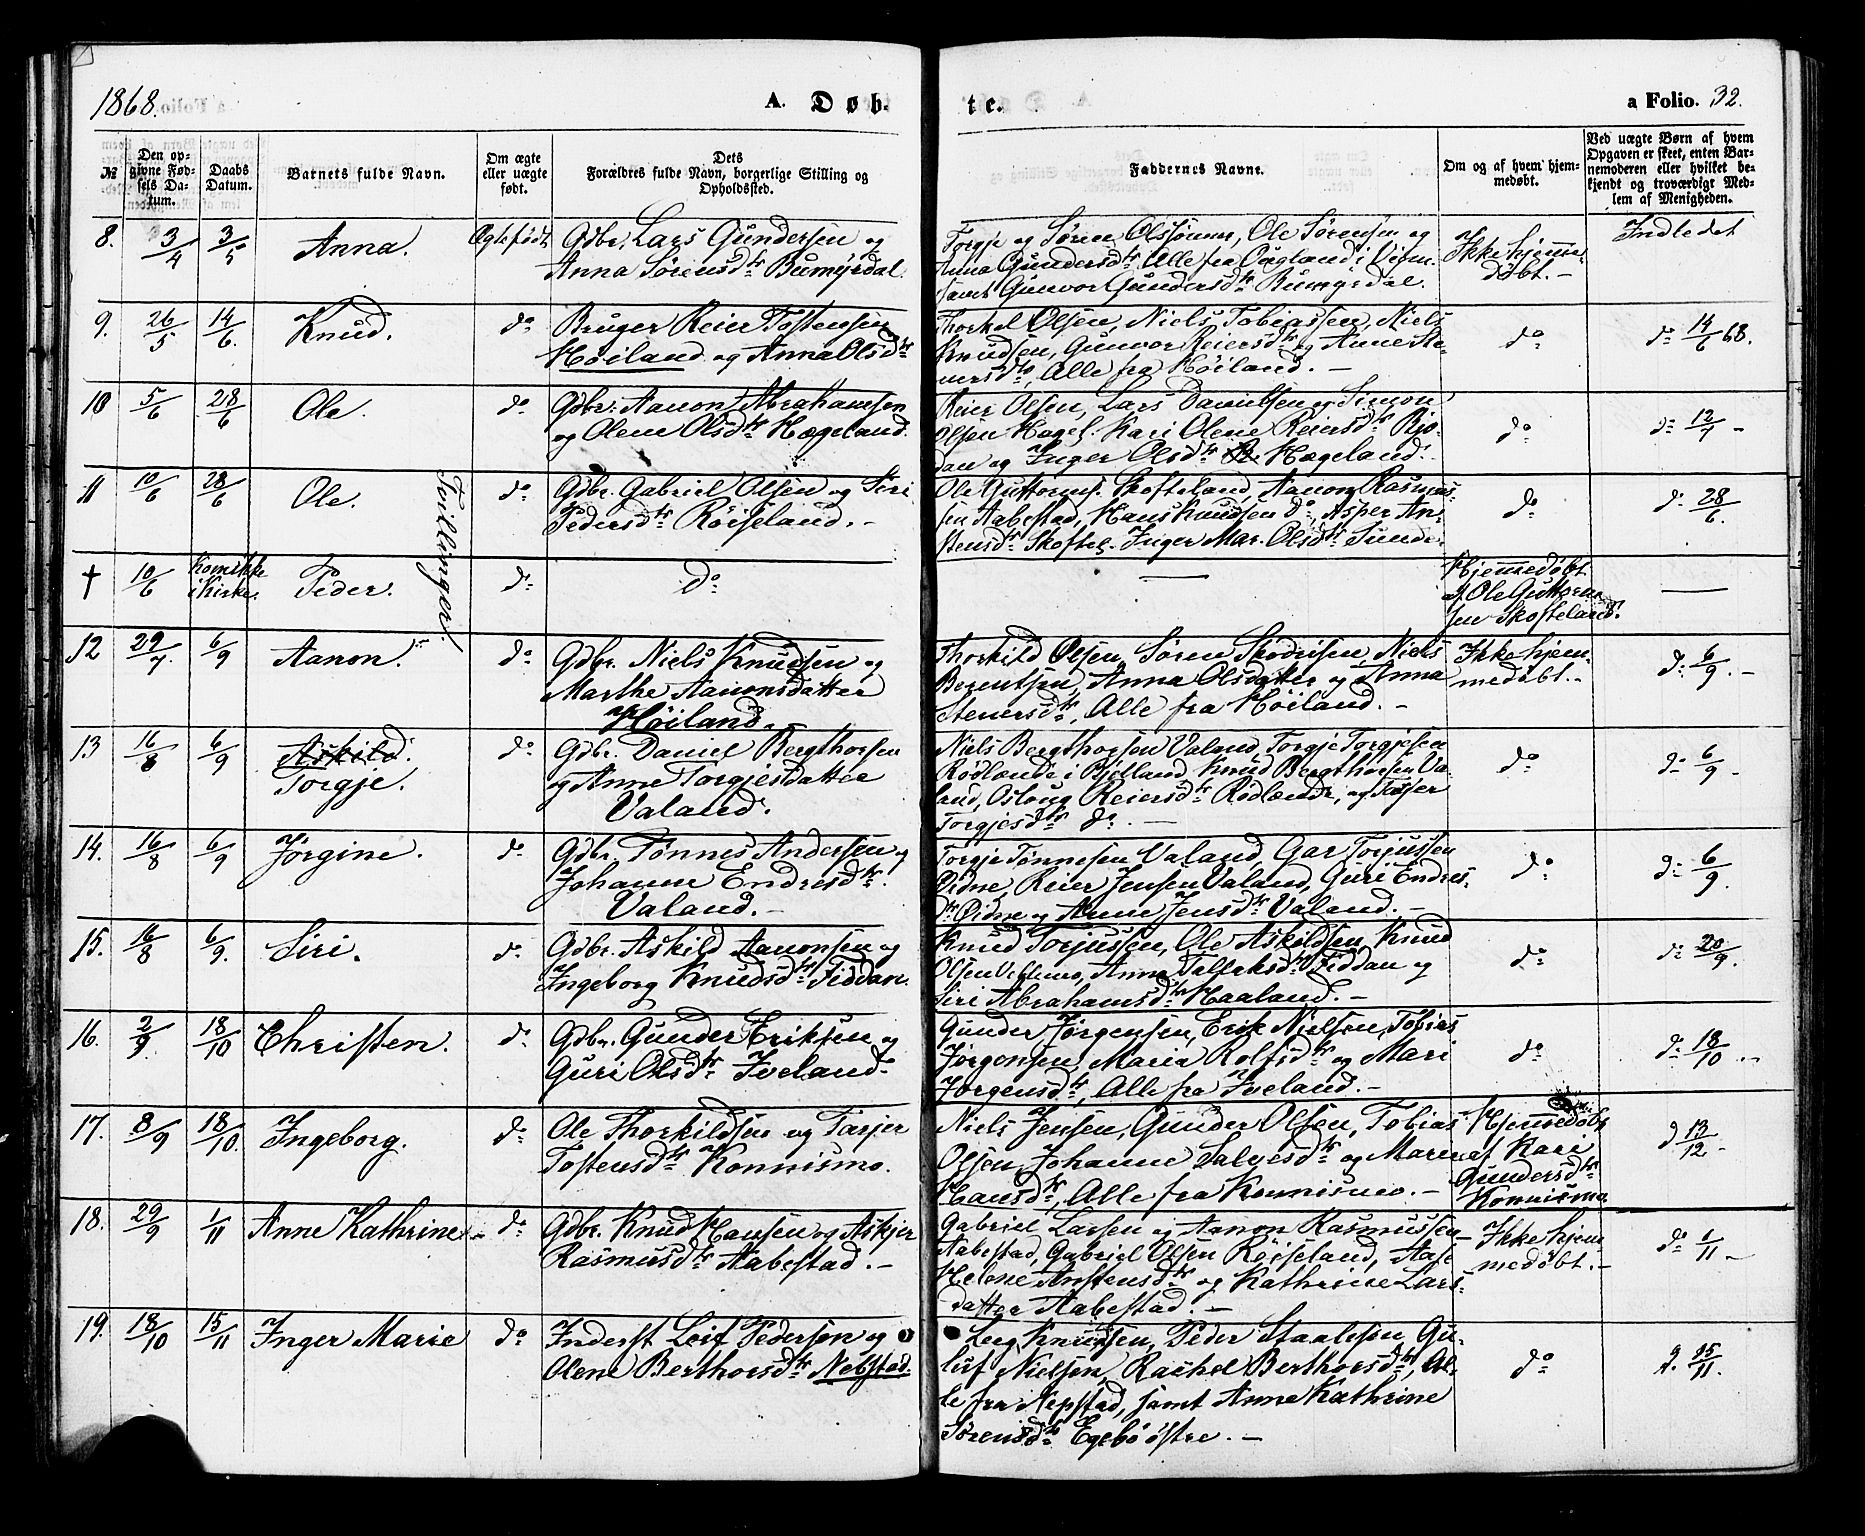 1868.
A. Døb-
te.
a Folio. 32.
№
Den op-
givne Fød-
sels Da-
tum.
Daabs
Datum.
Barnets fulde Navn.
Om ægte
eller uægte
født.
Dets
Forældres fulde Navn, borgerlige Stilling og
Opholdssted.
Faddernes Navne.
Om og af hvem hjem-
medøbt.
Ved uægte Børn af hvem
Opgaven er skeet, enten Bar-
nemoderen eller hvilket be-
kjendt og troværdigt Med-
lem af Menigheden.
8. 3/4 3/5 Anna. Ægtefødt
Gdbr. Lars Gundersen og
Anna Sørensdtr Bumyrdal.
Torgje og Søren Olssønner, Ole Sørensen og
Anna Gundersdtr Alle fra
samt Gunvor Gundersdtr Bumyrdal.
Ikke hjemme-
døbt. –
Indledet
9. 26/5 14/6 Knud. do
Bruger Reier Tostensen
Høiland og Anna Olsdtr
Thorkel Olsen, Niels Tobiassen, Niels
Knudsen, Gunvor Reiersdtr og Anne Ste-
nersdtr, Alle fra Høiland. –
do
do 14/6 68.
10 5/6 28/6 Ole. do
Gdbr. Aanon Abrahamsen
og Olene Olsdtr Hægeland.
Reier Olsen, Lars Danielsen og Simon
Olsen Hægel. Kari Olene Reiersdtr Rjo-
dan og Inger Olsdtr Hægeland.
do
do 12/7 –
11 10/6 28/6 Ole. do
Tvillinger.
Gdbr. Gabriel Olsen og Siri
Pedersdtr Røiseland. –
Ole Guttorms. Skofteland, Aanon Rasmus-
sen Aabestad, Hans Knudsen do, Asper An-
stensdtr Skoftel. Inger Mar. Olsdtr Sunde.
do
do 28/6.
† 10/6 Kom ikke
i Kirke. Peder. do do
—
Hjemmedøbt
af Ole Guttorm-
sen Skofteland.
—
12 29/7. 6/9 Aanon. do
Gdbr. Niels Knudsen og
Marthe Aanonsdatter
Høiland.
Thorkild Olsen, Søren Niels
Berentsen, Anna Olsdatter og Anna
Stenersdtr, Alle fra Høiland. –
Ikke hjem-
medøbt. –
do 6/9. –
13 16/8 6/9 Askild.
Torgje. do
Gdbr. Daniel Bergthorsen
og Anne Torgjesdatter
Valand.
Niels Bergthorsen Valand, Torgje Torgjesen
Rødlende i Bjelland, Knud Bergthorsen Va-
land, Osloug Reiersdtr Rødlende, og
Torgjesdtr do. –
do
do 6/9 –
14. 16/8 6/9 Jørgine. do
Gdbr. Tønnes Andersen og
Johanne Endresdtr.
Valand. –
Torgje Tønnesen Valand, Gar Torjussen
Øidne, Reier Jensen Valand, Guri Endres-
dtr Øidne og Anne Jensdtr Valand. –
do
do 6/9.
15. 16/8 6/9. Siri. do
Gdbr. Askild Aanonsen og
Ingeborg Knudsdtr Fiddan.
Knud Torjussen, Ole Askildsen, Knud
Olsen Anne Tallaksdtr Fiddan og
Siri Abrahamsdtr Haaland. –
do
do 20/9.
16. 2/9. 18/10 Christen. do
Gdbr. Gunder Eriksen og
Guri Olsdtr Iveland.
Gunder Jørgensen, Erik Nielsen, Tobias
Jørgensen, Maria Rolfsdtr og Mari
Jørgensdtr, Alle fra Iveland. –
do
do 18/10 –
17. 8/9 18/10. Ingeborg. do
Ole Thorkildsen og Tarjer
Tostensdtr Konnismo.
Niels Jensen, Gunder Olsen, Tobias
Olsen, Johanne Salvesdtr og Maren
Hansdtr, Alle fra Konnismo. –
Hjemmedøbt
af Kari
Gundersdtr
Konnismo
d 13/12 –
18. 29/9 1/11 Anne Kathrine – do
Gdbr. Knud Hansen og Askjer
Rasmusdtr Aabestad. –
Gabriel Larsen og Aanon Rasmussen
Aabestad, Gabriel Olsen Røiseland, Aase
Helene Anstensdtr og Kathrine Lars-
datter Aabestad. –
Ikke hjem-
medøbt. –
do 1/11 –
19. 18/10 15/11 Inger Marie do
Inderst Leif Pedersen og
Olene Berthorsdtr Nebstad.
Leeg Knudsen, Peder Staalesen, Gu-
luf Nielsen, Rachel Berthorsdtr, Al-
le fra Nepstad, samt Anne Kathrine
Sørensdtr Egebø østre. –
do
d. 15/11.